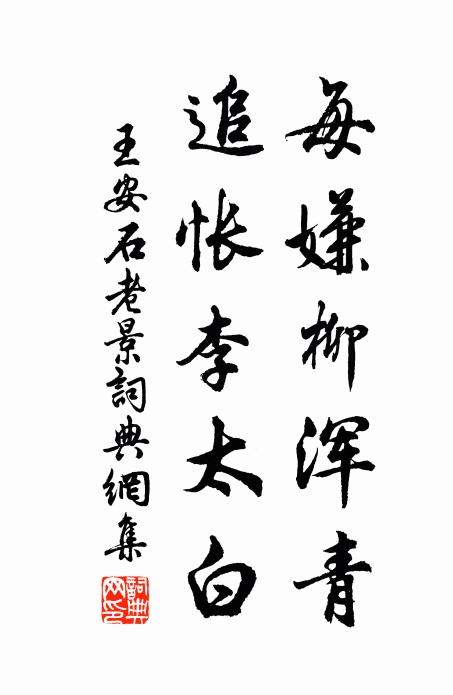 每嫌柳浑青
追怅李太白
王安石老景詞典網集
詞典网印